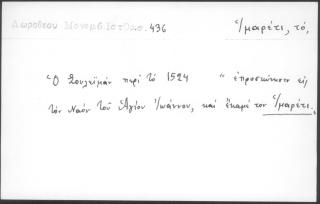 Δωροθέου Μονεμβ. Ιστ. Θασ. 436 ἱμαρέτι, τό,
Ὁ Σουλεϊμάν περί τό 1524 " ἐπροσκύνησεν εἰς
τόν Ναόν τοῦ Ἁγίου Ἰωάννου, καί ἔκαμε τον ἱμαρέτι.